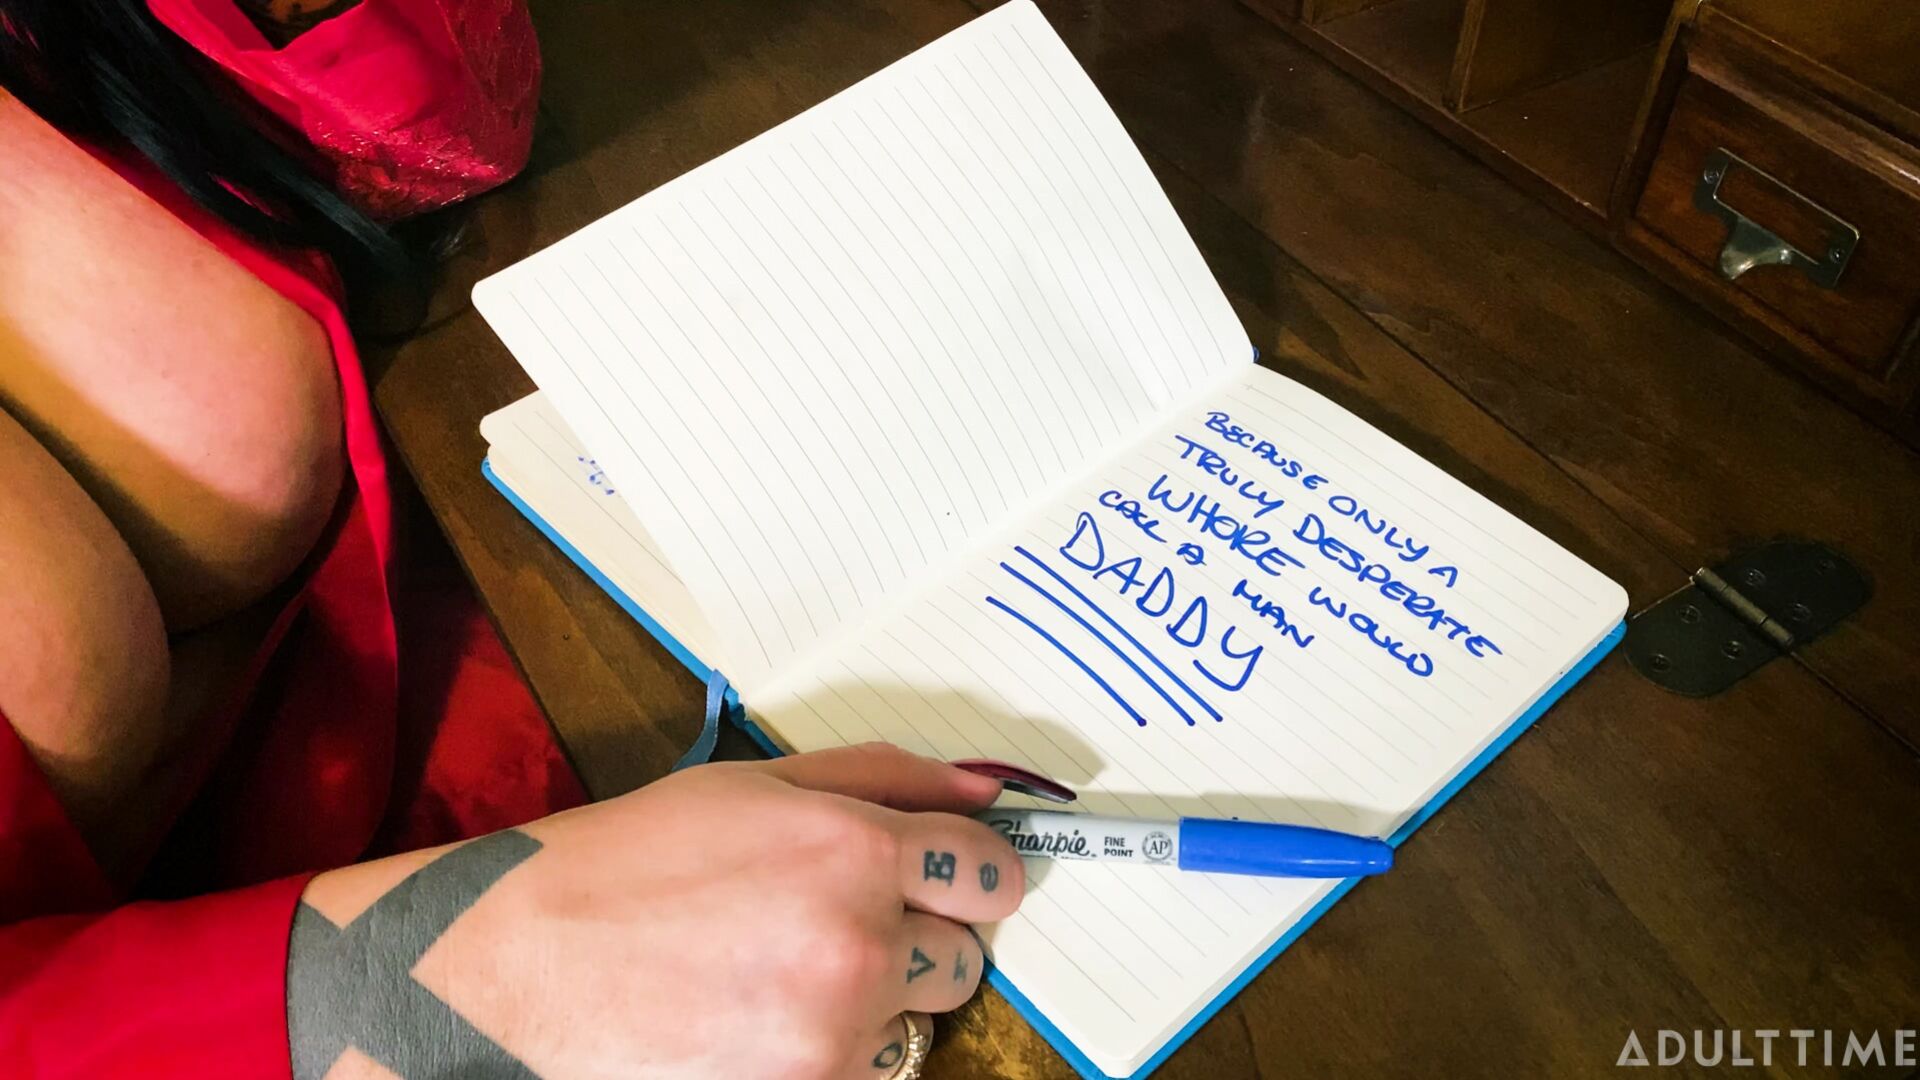 BECAUSE ONLY A
TRULY DESPERATE
WHORE WOULD
CALL A MAN
DADDY
Sharpie
FINE
POINT
AP
E e
V r
O
ADULTTIME